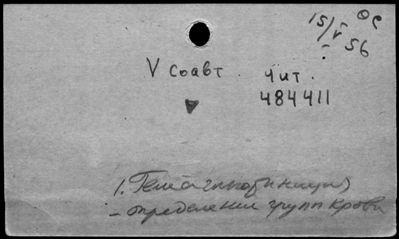 15/V 56
V соавт. чит.
484411
1. Гемагглютинация
- определение групп крови